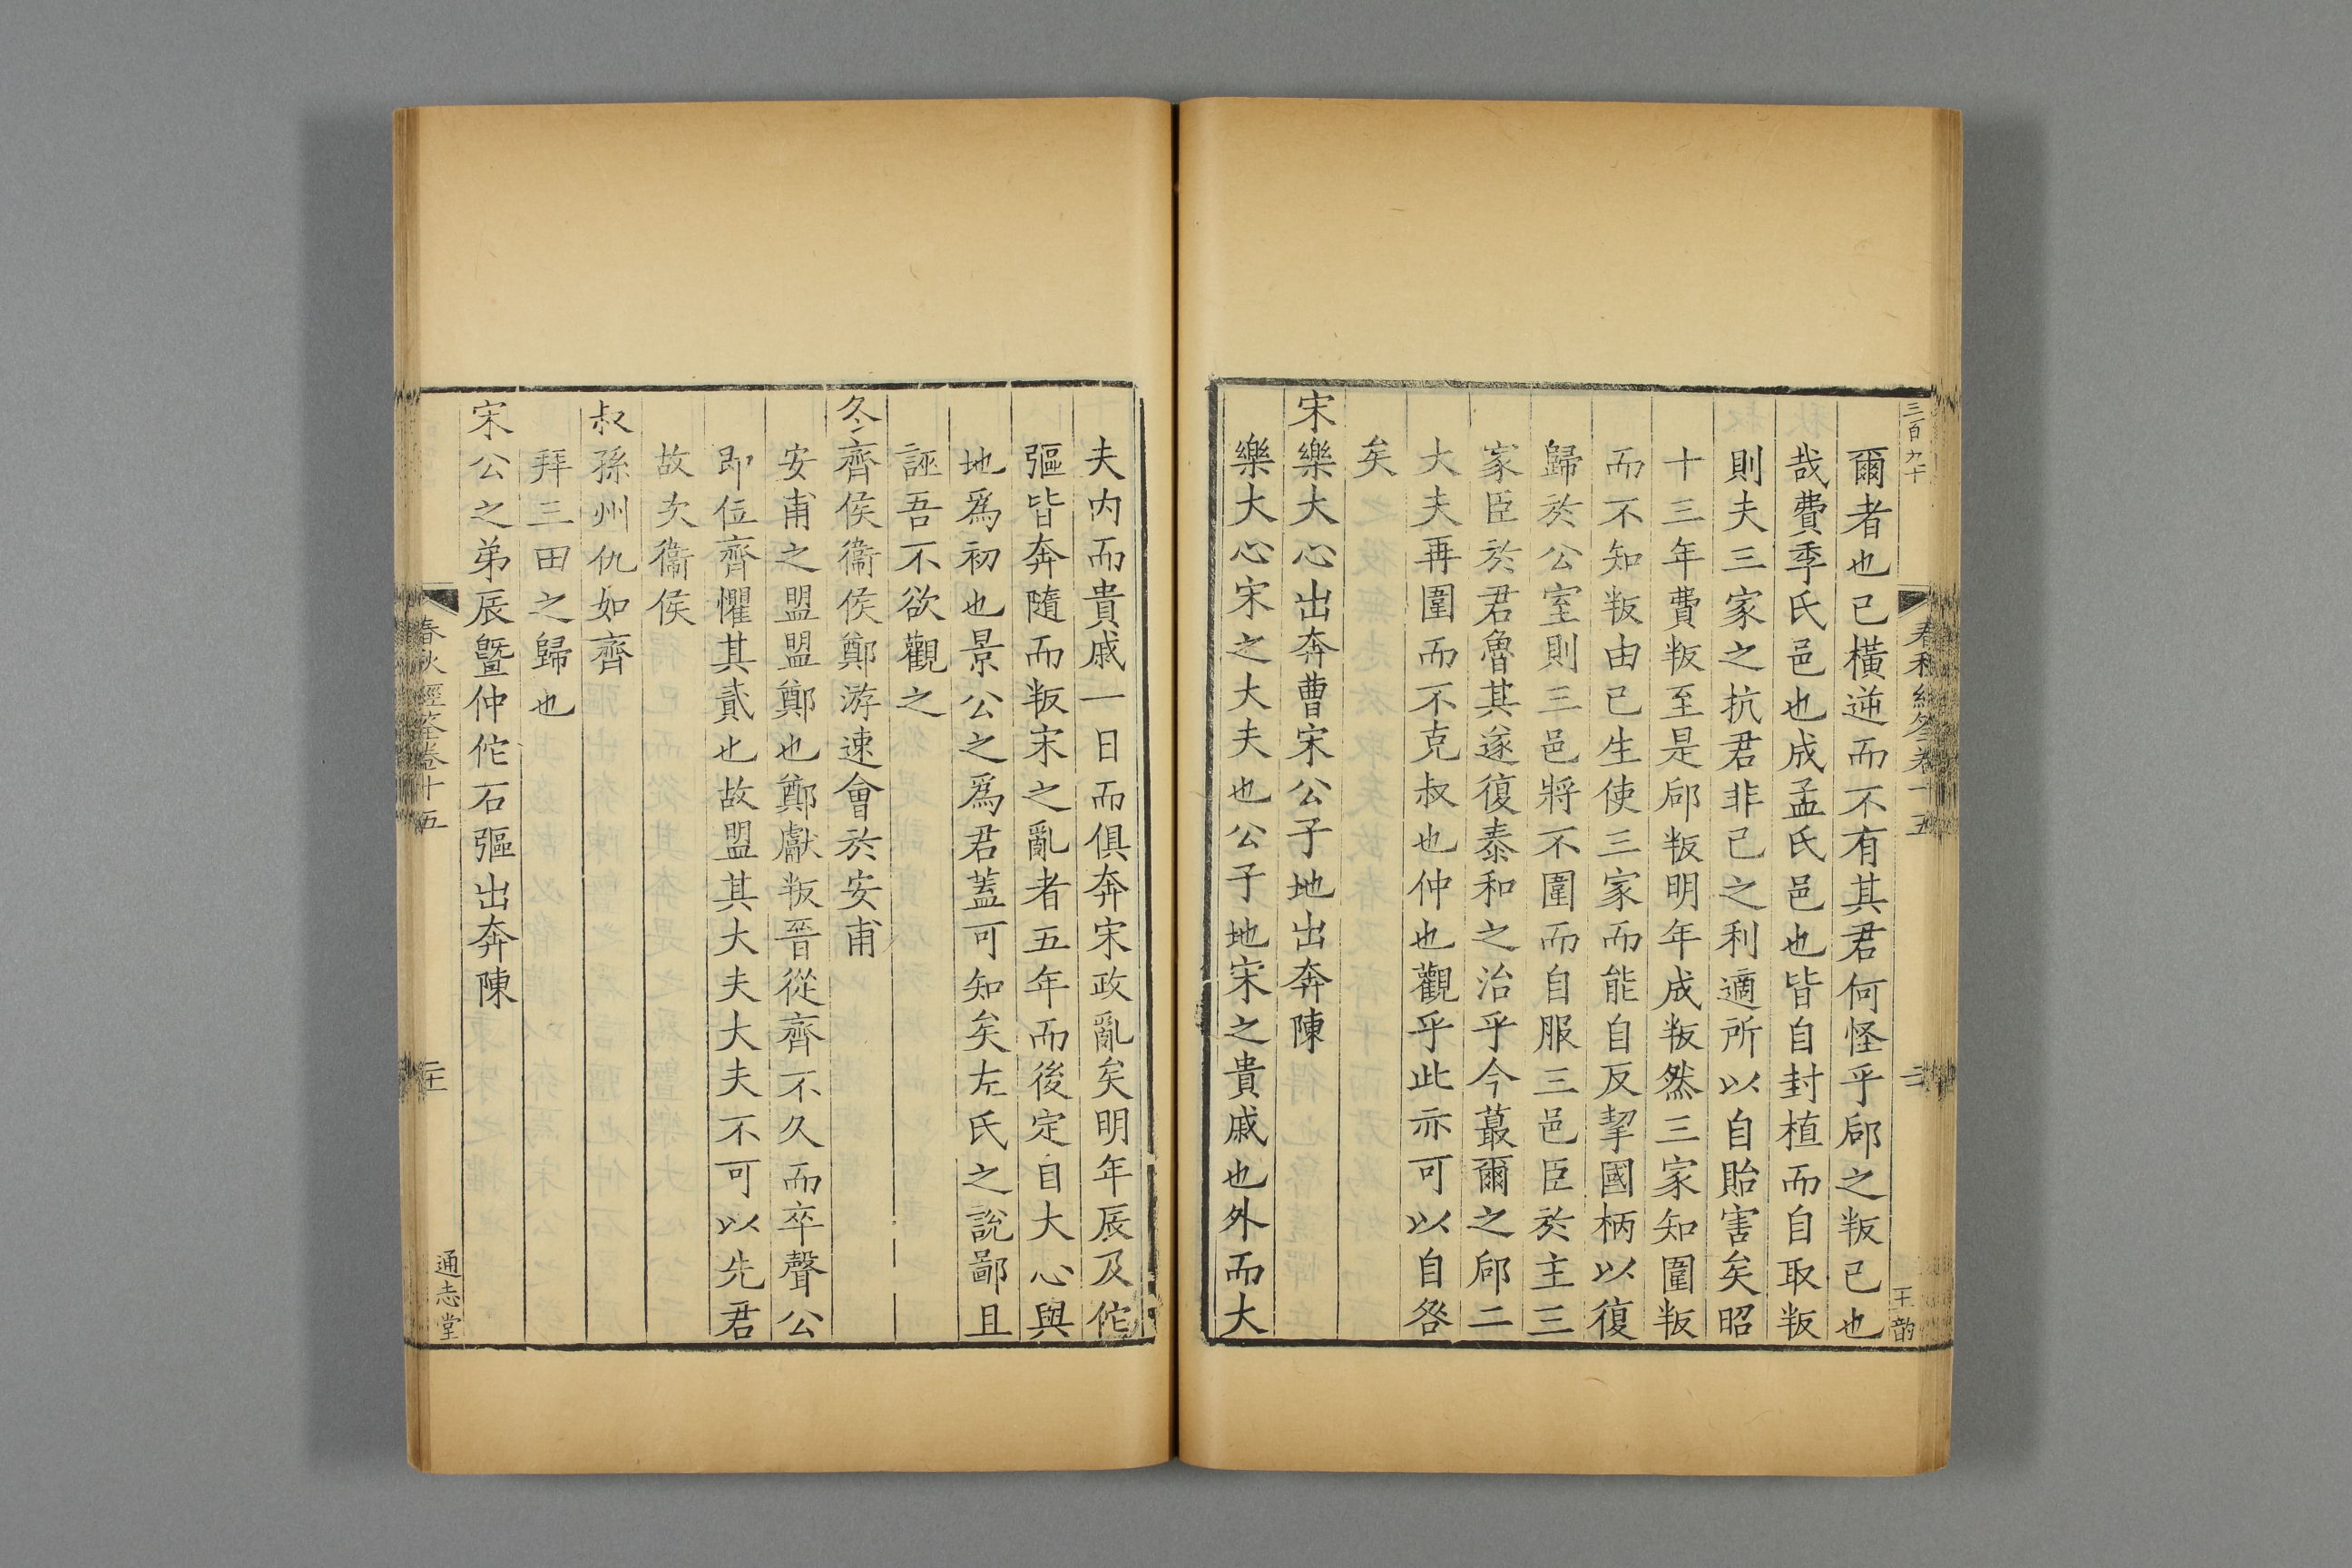 三百九十
爾者也已橫逆而不有其君何怪乎郈之叛已也
哉費季氏邑也成孟氏邑也皆自封植而自取叛
則夫三家之抗君非已之利適所以自貽害矣昭
十三年費叛至是郈叛明年成叛然三家知圍叛
而不知叛由已生使三家而能自反挈國柄以復
歸於公室則三邑將不圍而自服三邑臣於主三
家臣於君魯其遂復泰和之治乎今蕞爾之郈二
大夫再圍而不克叔也仲也觀乎此亦可以自咎
矣
宋樂大心出奔曹宋公子地出奔陳
樂大心宋之大夫也公子地宋之貴戚也外而大
夫内而貴戚一日而俱奔宋政亂矣明年辰及佗
彄皆奔隨而叛宋之亂者五年而後定自大心與
地爲初也景公之爲君蓋可知矣左氏之說鄙且
誣吾不欲觀之
冬齊侯衞侯鄭游速會於安甫
安甫之盟盟鄭也鄭獻叛晉從齊不久而卒聲公
即位齊懼其貳也故盟其大夫大夫不可以先君
故次衞侯
叔孫州仇如齊
拜三田之歸也
宋公之弟辰曁仲佗石彄出奔陳
春秋經筌卷十五
通志堂